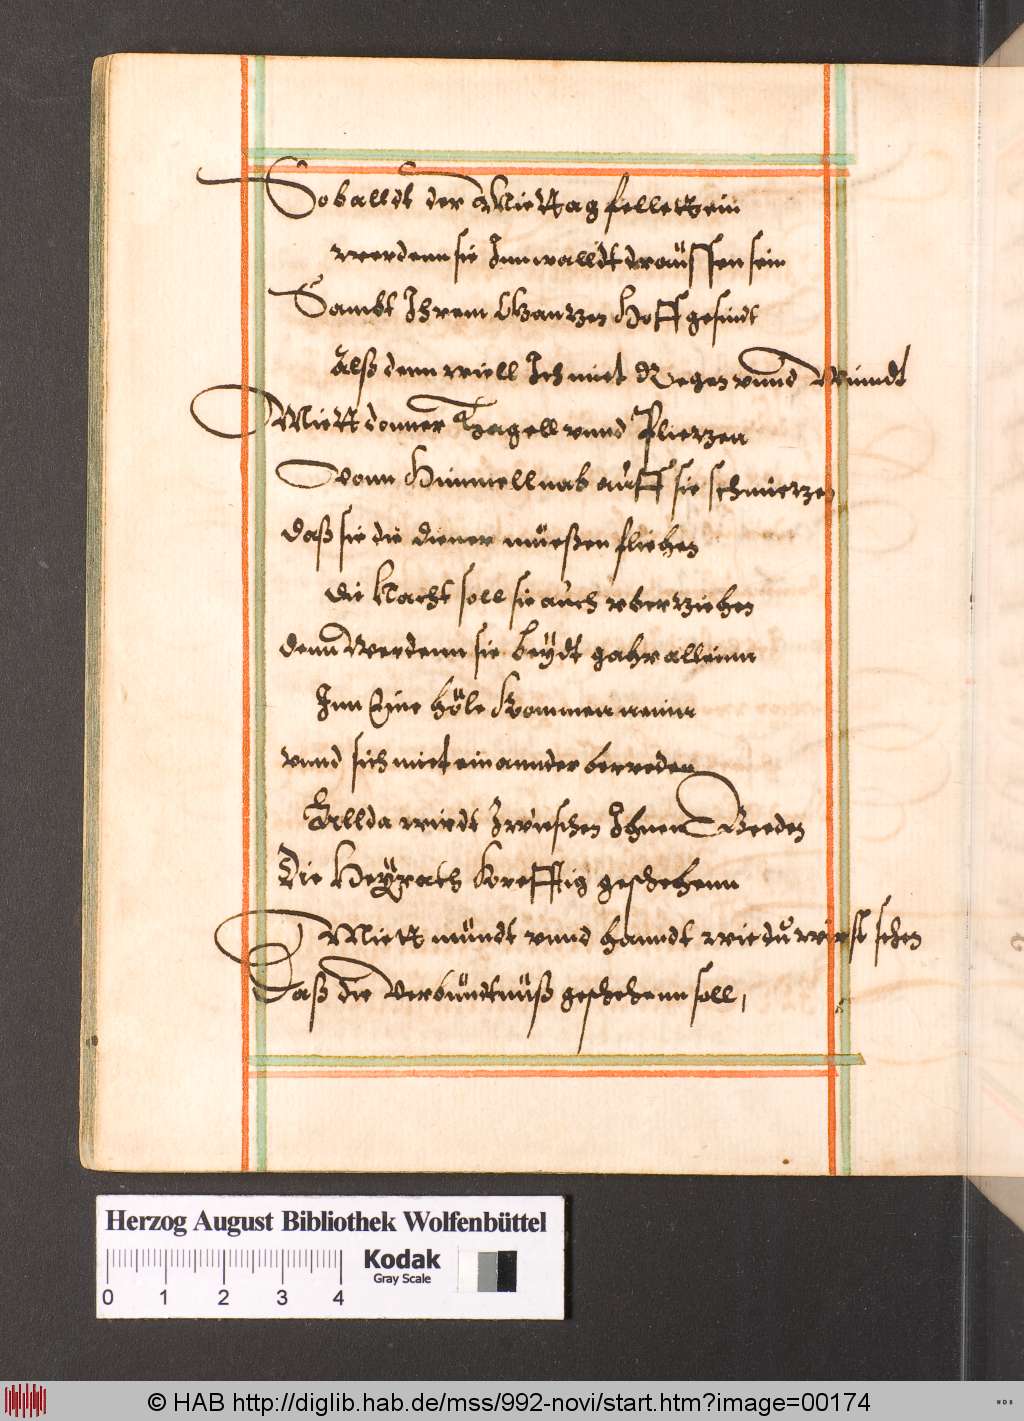 Soballdt der Miettag felletzein
werdenn sie Inn walldt draüssen sein
Sambt Ihrem Gantzen Hoff gesindt
Alß denn wiell Ich miet Regen vnnd Wiindt
Miett donner Hagell vnnd Plietzen
Vonn Himmell nab aüff sie schmietzen
Daß sie die diener müeßen fliehen
die Nacht soll sie aüch vberziehen
denn Werdenn sie beÿdt gahr alleinn
Inn Eine höle Kommen neinn
vnnd sich miet ein annder berreden
Allda wirdt Zwieschen Ihnen Beeden
Die Heÿrath Kreffftig geschehenn
Miett mündt vnnd hanndt wie dü wirst sehen
Daß die Verbündtnüß geschehenn soll,
Herzog August Bibliothek Wolfenbüttel
Kodak
Gray Scale
0 1 2 3 4
© HAB http://diglib.hab.de/mss/992-novi/start.htm?image=00174